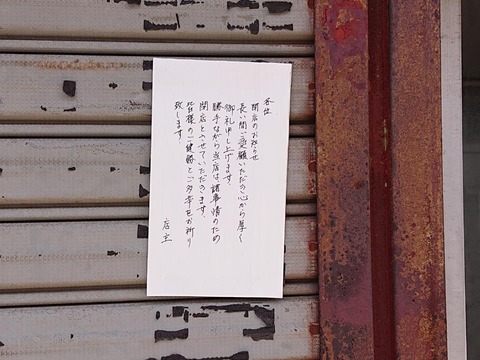 各位
閉店のお知らせ
長い間ご愛顧いただき心から厚く
御礼申し上げます。
勝手ながら当店は諸事情のため
閉店とさせていただきます。
皆様のご健勝とご多幸をお祈り
致します。
店主